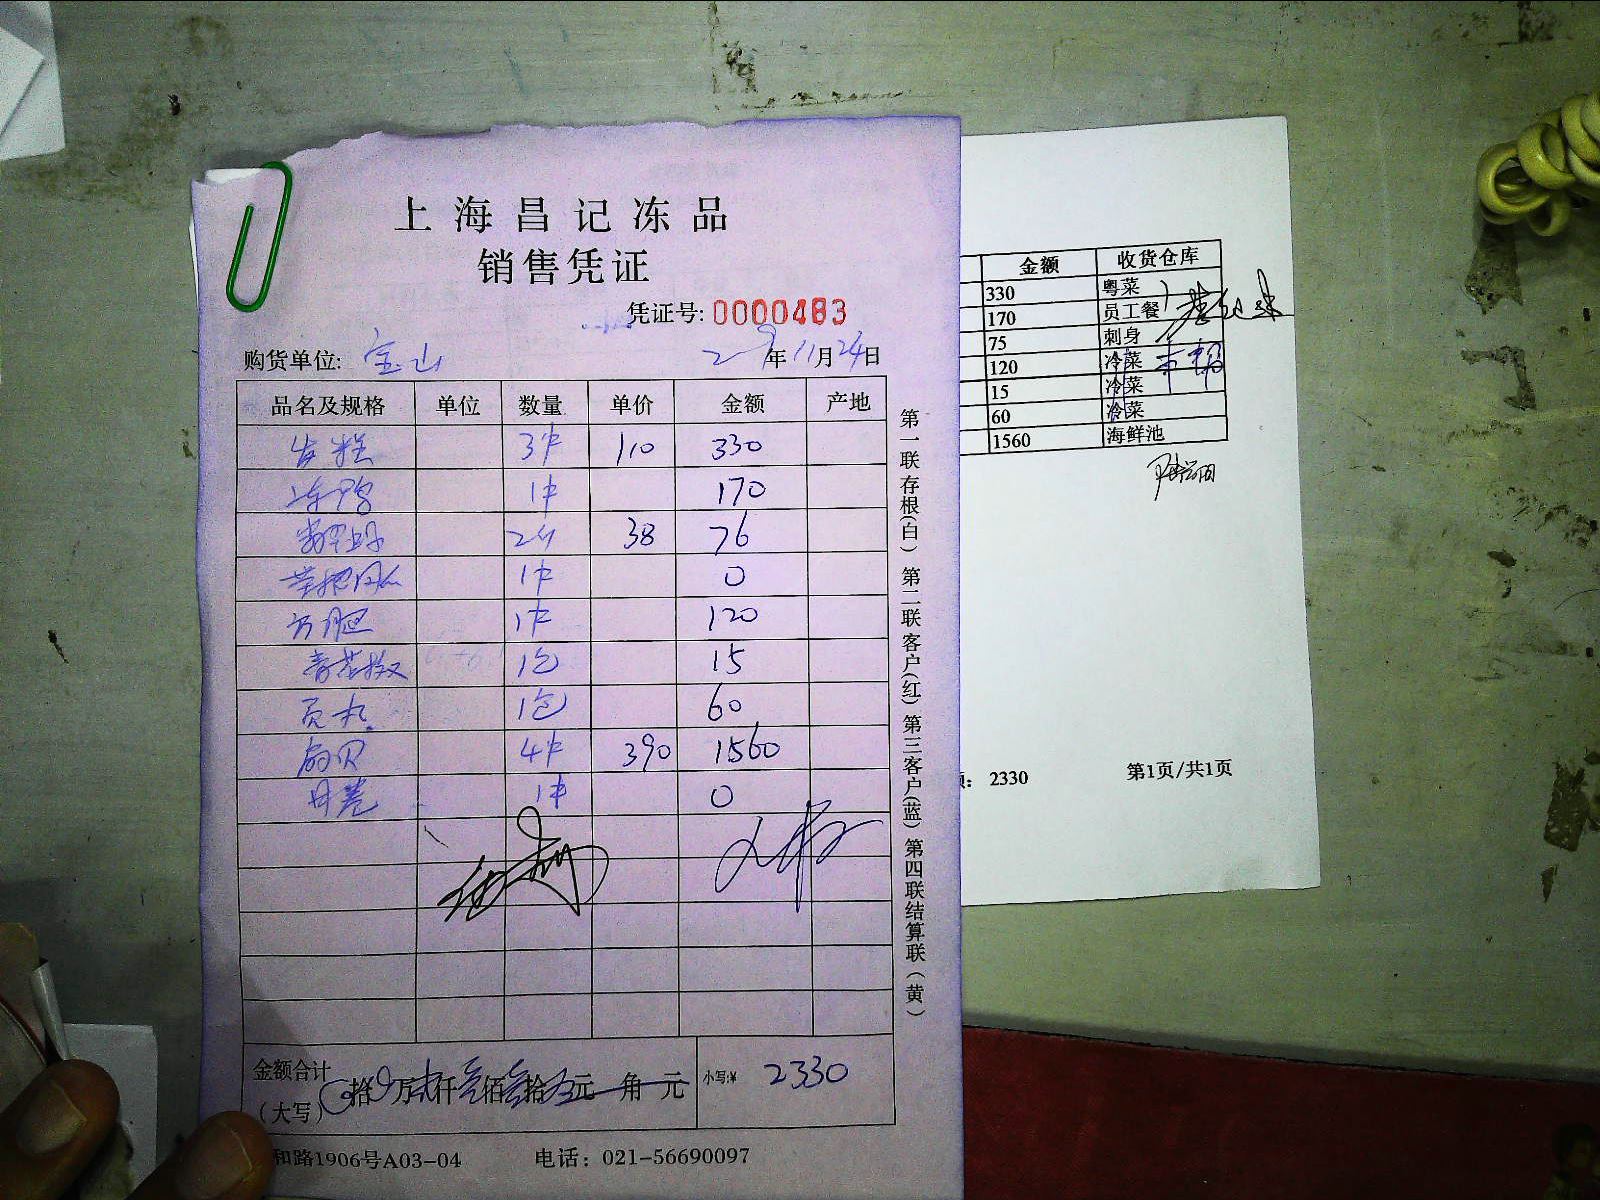 上海昌记冻品
销售凭证
凭证号: 0000483
购货单位: 宝山 年 11月 24日
品名及规格 单位 数量 单价 金额 产地
3件 110 330
冻鸭 1件 170
38 76
1件 0
方腿 1件 120
1包 15
贡丸 1包 60
扇贝 4件 390 1560
1件 0
金额合计
(大写)
拾 万 仟 佰 拾 元 角 元
小写:¥ 2330
和路1906号A03-04 电话: 021-56690097
第一联存根(白) 第二联客户(红) 第三客户(蓝) 第四联结算联(黄)
金额 收货仓库
330 粤菜
170 员工餐
75 刺身
120 冷菜
15 冷菜
60 冷菜
1560 海鲜池
: 2330 第1页/共1页